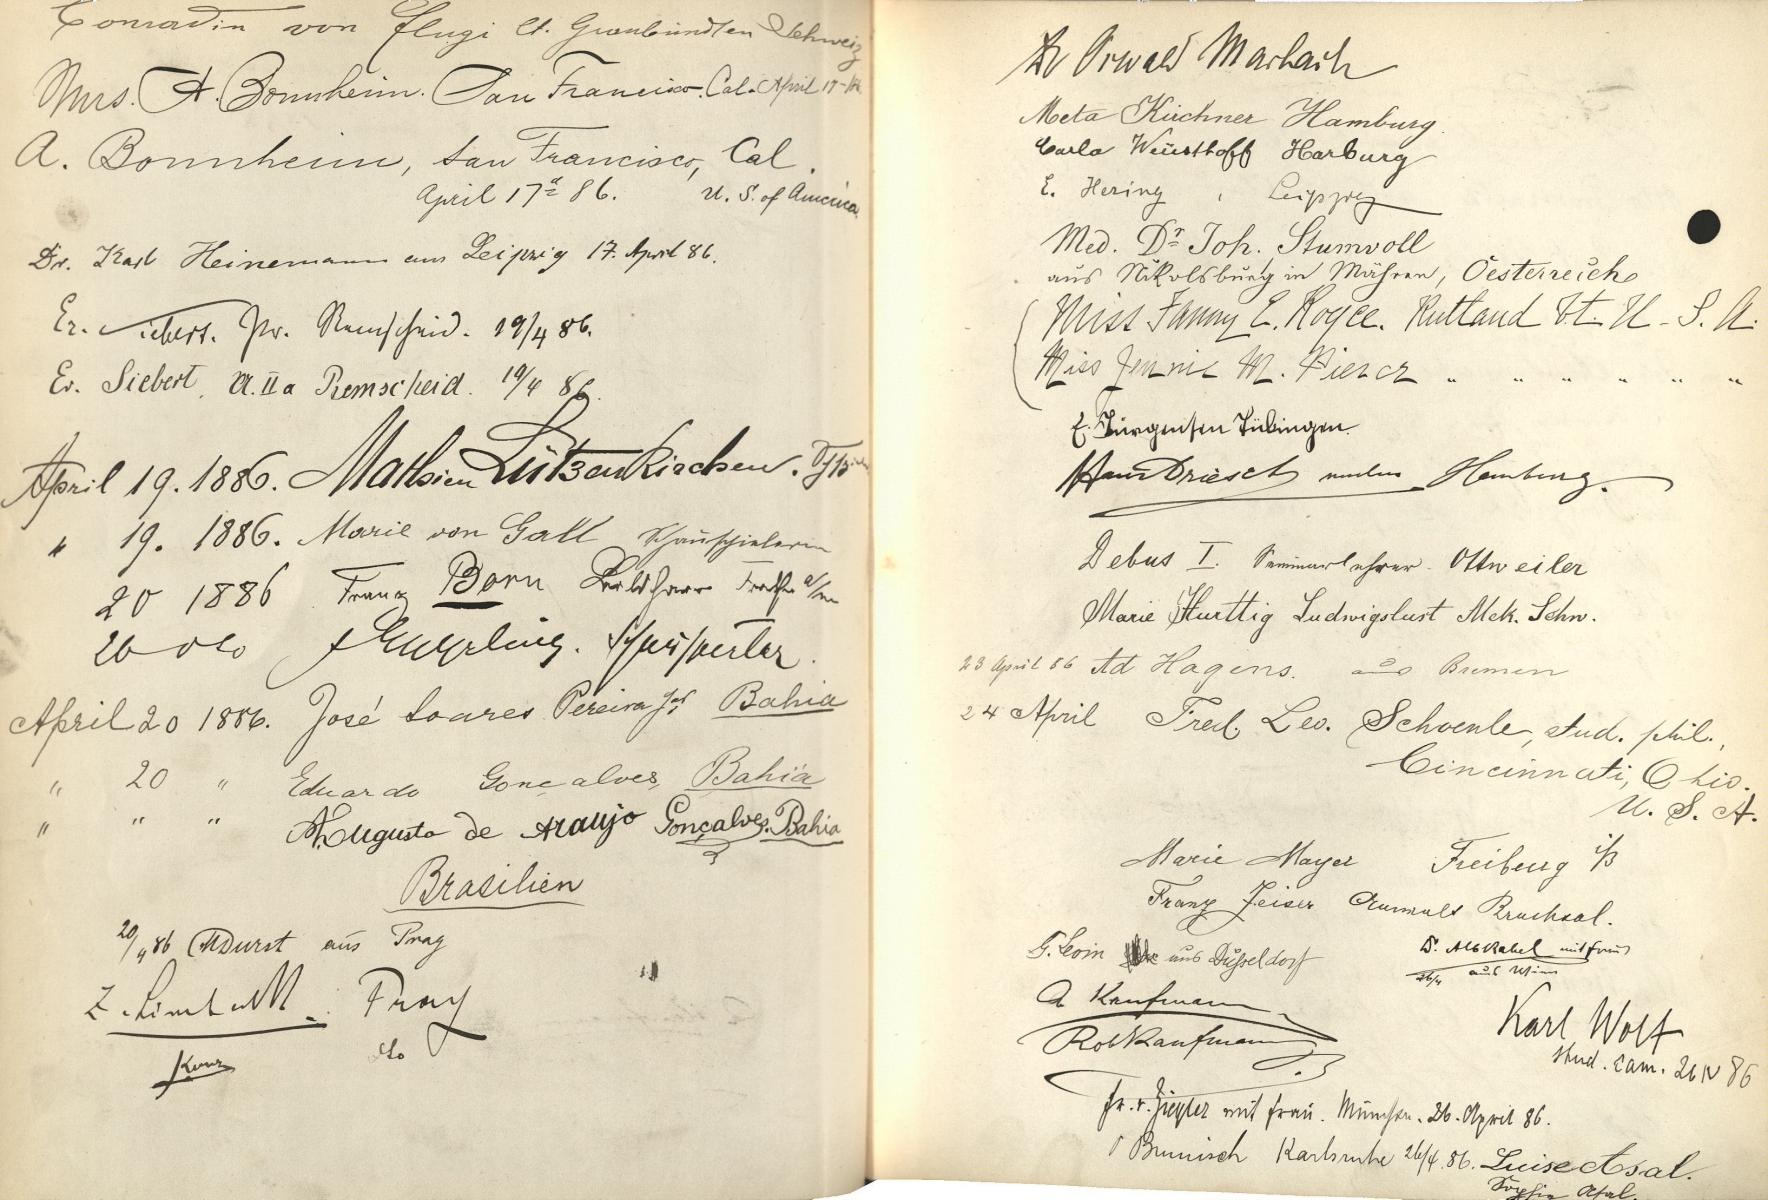 Conradin von Flugi Ct. Graubündten Schweiz
Mrs. A. Bonnheim. San Francisco. Cal. April 17
A. Bonnheim, San Francisco, Cal.
April 17 86. U. S. of America
Dr. Karl Heinemann aus Leipzig 17. April 86.
Er. Siebert. Pr. Remscheid. 19/4 86.
Er. Siebert, II a Remscheid. 19/4 86.
April 19. 1886. Mathieu Lützenkirchen.
" 19. 1886. Marie von Gall Schauspielerin
20 1886 Franz Born
20 do
April 20 1886. José Soares Pereira Jor Bahia
" 20 " Eduardo Gonçalves, Bahia
" " " Augusto de Araujo Gonçalves. Bahia
Brasilien
20/4 86 Durst aus Prag
Prag
do
Dr Oswald Marbach
Meta Kirchner Hamburg.
Carla Weusthoff Harburg
E. Hering, Leipzig
Med. Dr Joh. Stumvoll
aus Nikolsburg in Mähren, Oesterreich
Miss Fanny E. Royce. Rutland Vt. U. S. A.
Miss Jennie M. Pierce " " " " " "
E. Jürgensen Tübingen.
Hans Driesch Hamburg.
Debus I. Seminarlehrer. Ottweiler
Marie Hurttig Ludwigslust Mek. Schw.
23 April 86 Ad Hagens. aus Bremen
24 April Fred. Leo. Schoenle, stud. phil.,
Cincinnati, Ohio.
U. S. A.
Marie Mayer Freiburg i/B
Franz Zeiser Bruchsal.
G. Leoin aus Düsseldorf
Dr. Alb Kabel mit Frau
aus Wien
A Kaufmann
Rob Kaufmann
Karl Wolf
stud. cam. 26 IV 86
Fr. v. Ziegler mit Frau. München. 26. April 86.
Brunisch Karlsruhe 26/4. 86. Luise Asal.
Sophie Asal.